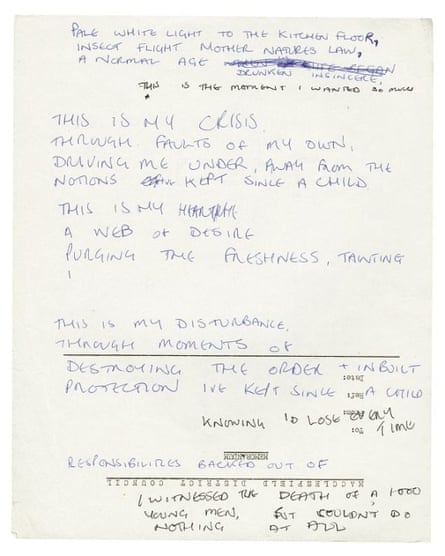 PALE WHITE LIGHT TO THE KITCHEN FLOOR,
INSECT FLIGHT MOTHER NATURES LAW,
A NORMAL AGE
DRUNKEN INSINCERE,
THIS IS THE MOMENT I WANTED SO MUCH
THIS IS MY CRISIS.
THROUGH FAULTS OF MY OWN,
DRIVING ME UNDER, AWAY FROM THE
NOTIONS KEPT SINCE A CHILD
THIS IS MY
A WEB OF DESIRE
PURGING THE FRESHNESS, TAINTING
I
THIS IS MY DISTURBANCE.
THROUGH MOMENTS OF
DESTROYING THE ORDER + INBUILT
PROTECTION IVE KEPT SINCE A CHILD
KNOWING I'D LOSE EVERY
To: TIME
MEMORANDUM
RESPONSIBILITIES BACKED OUT OF
MACCLESFIELD DISTRICT COUNCIL
I WITNESSED THE DEATH OF A 1000
YOUNG MEN, BUT COULDN'T DO
NOTHING AT ALL